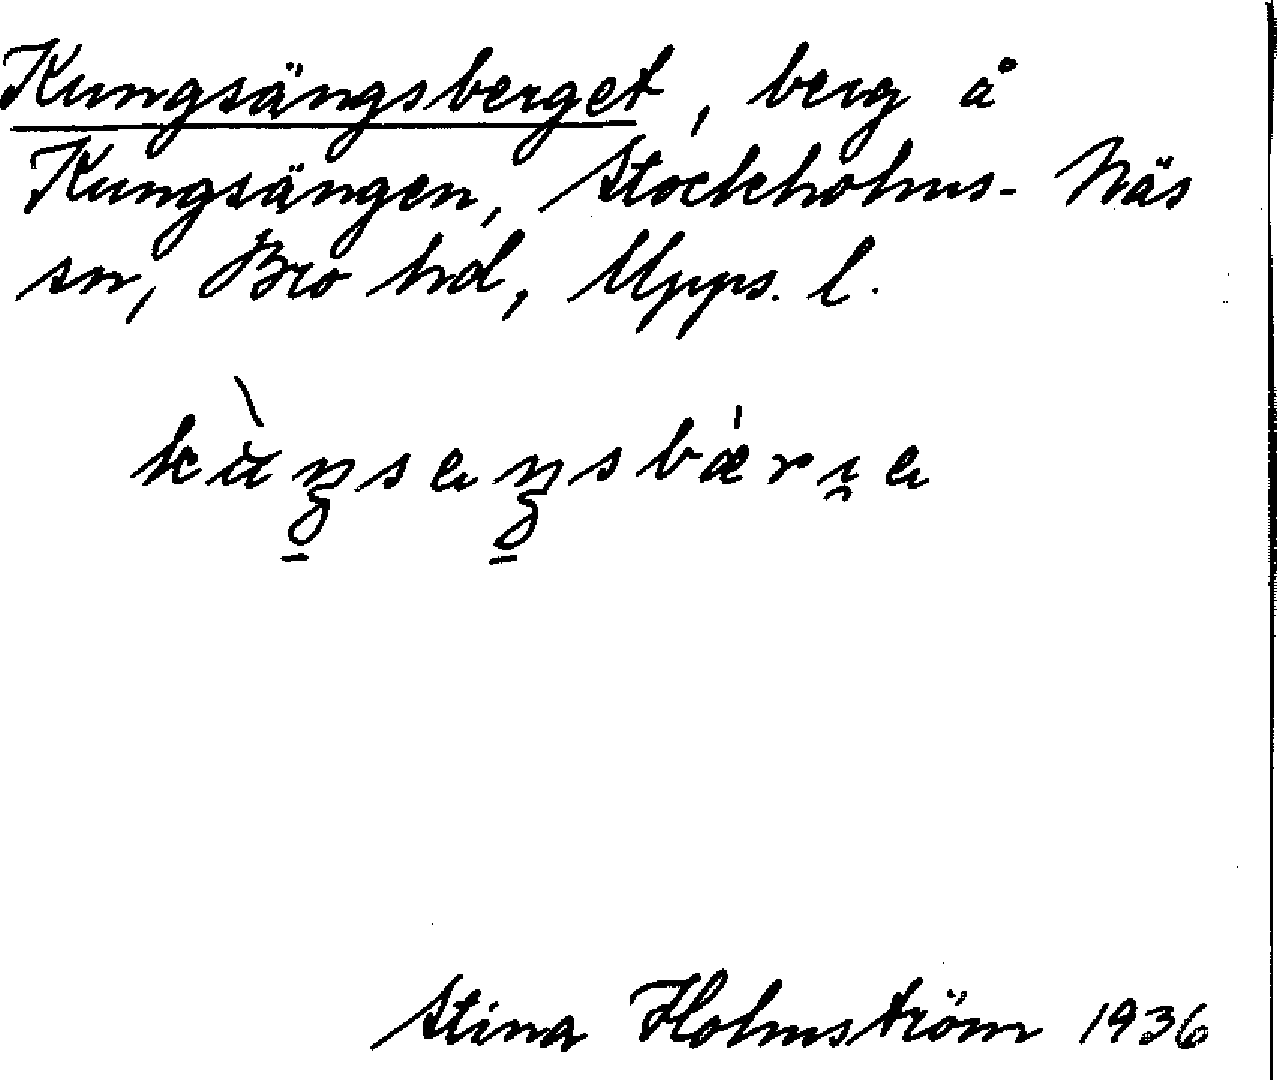 Kungsängsberget, berg å
Kungsängen, Stockholms-Näs
sn, Bro hd, Upps. l.
kùŋseŋsbærı̯e
Stina Holmström 1936